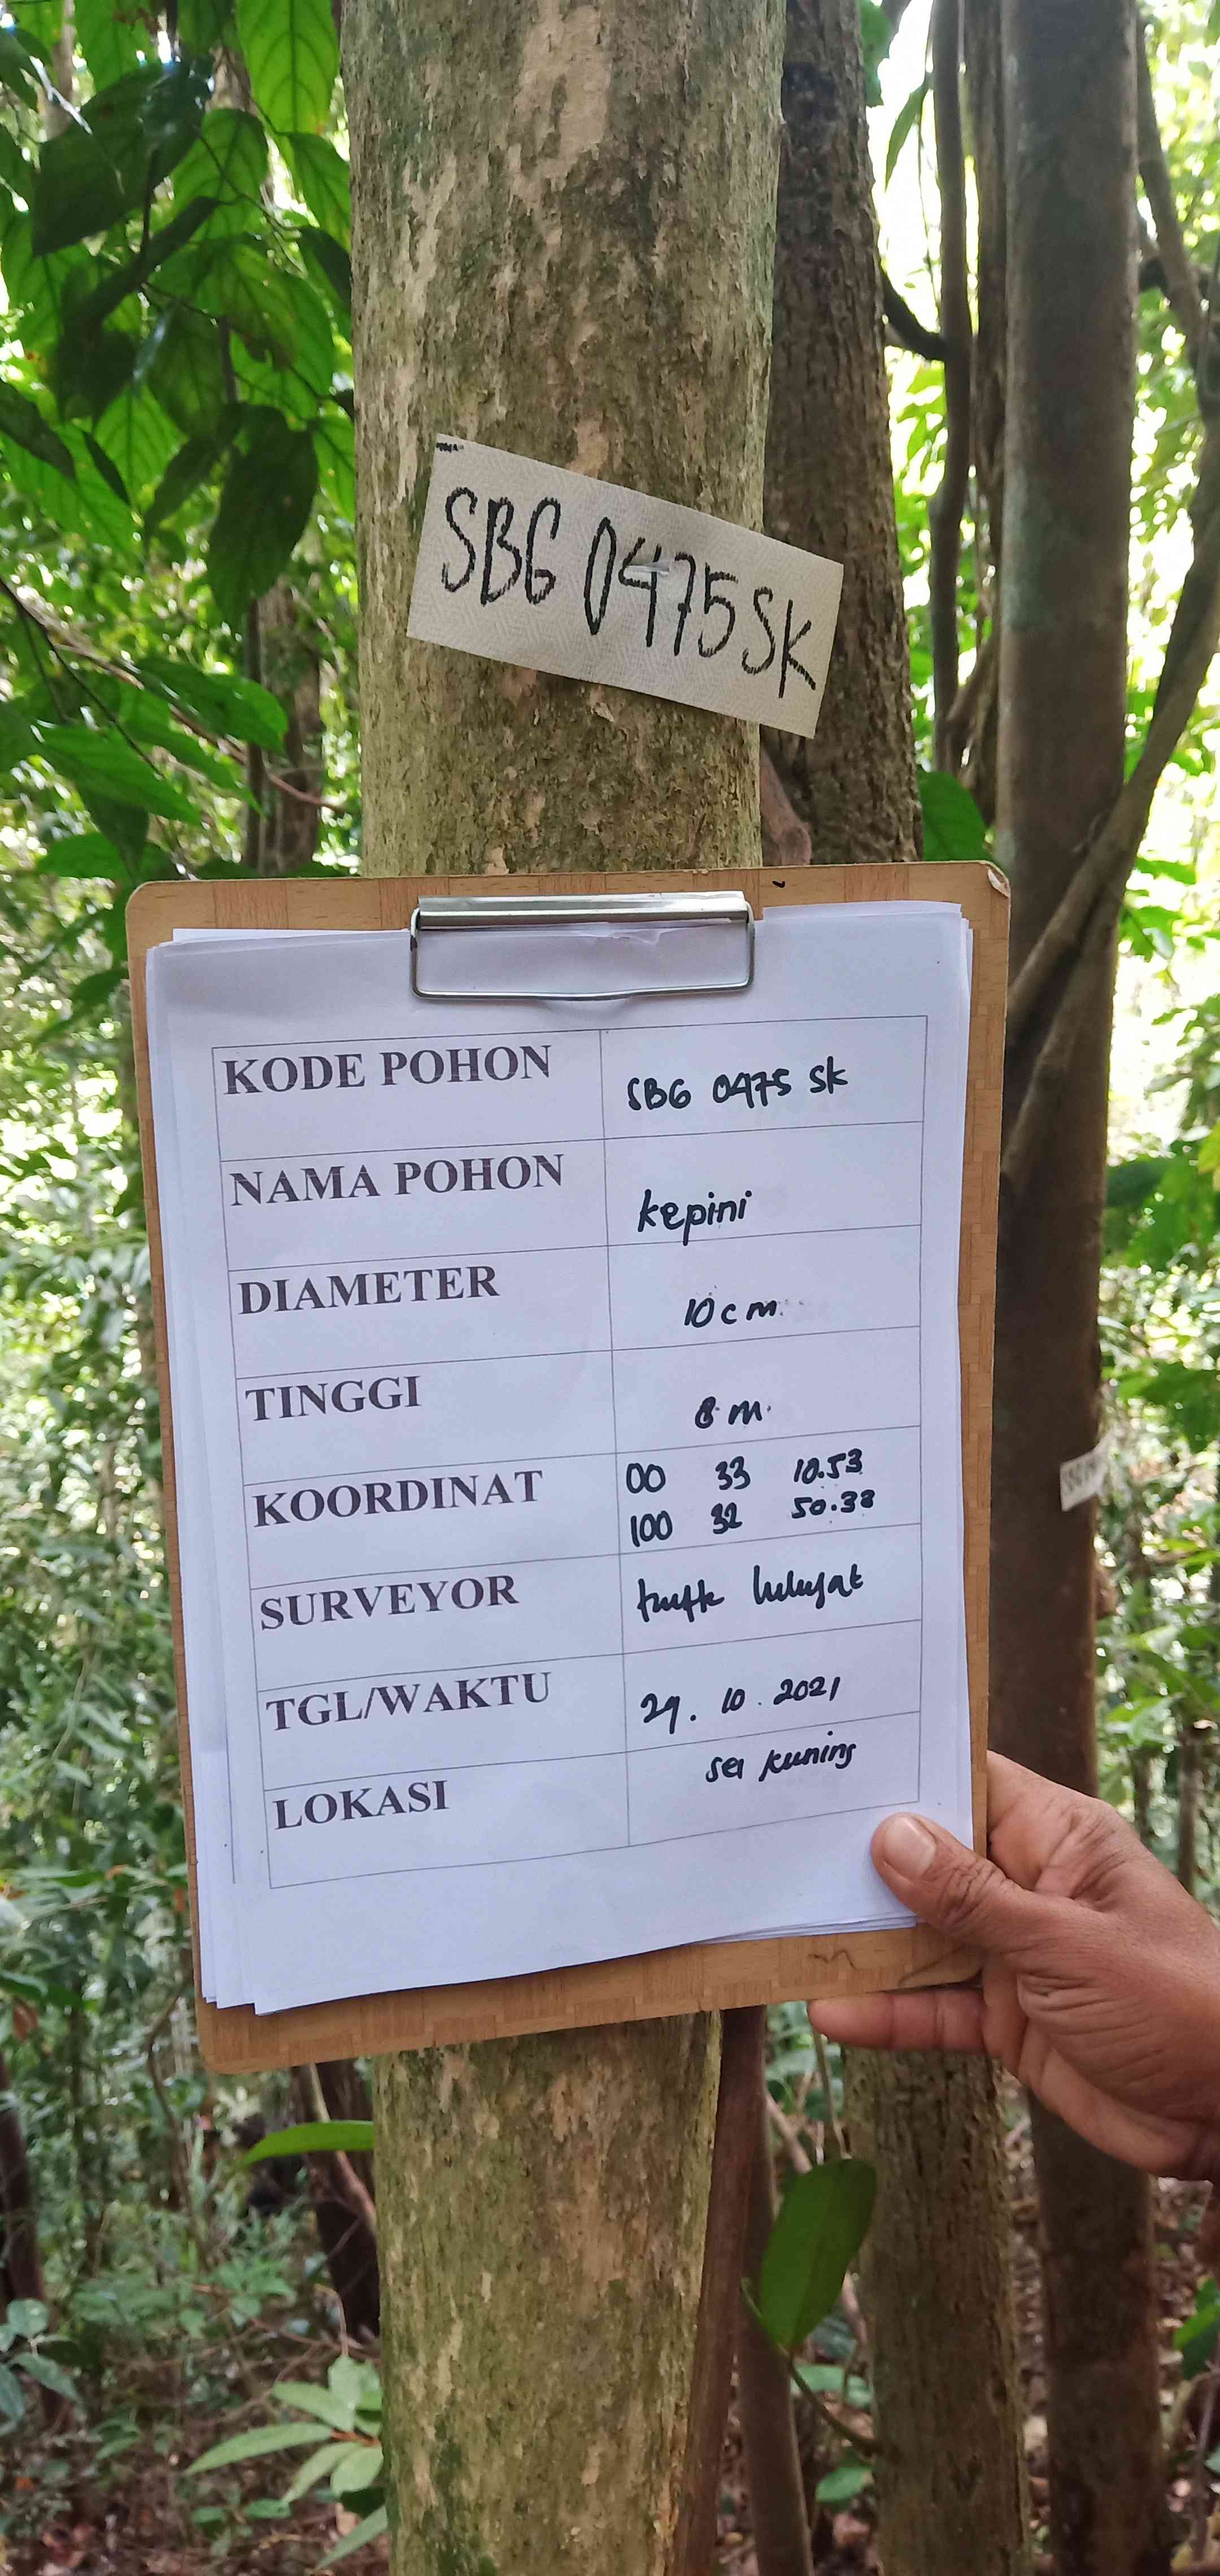 SBG 0475 SK
KODE POHON SBG 0475 SK
NAMA POHON kepini
DIAMETER 10 cm
TINGGI 8 m.
KOORDINAT 00 33 10.53
100 32 50.38
SURVEYOR
TGL/WAKTU 29. 10. 2021
LOKASI sei kuning